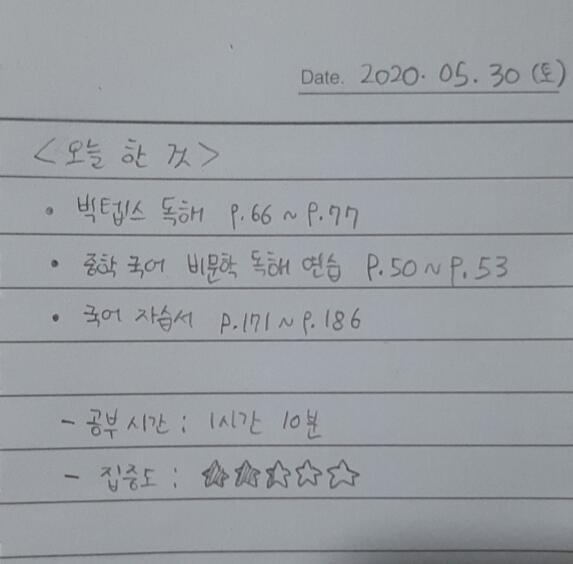 Date. 2020. 05. 30 (토)
<오늘 한 것>
• 빅텝스 독해 p.66 ~ p.77
• 중학 국어 비문학 독해 연습 p.50 ~ p.53
• 국어 자습서 p.171 ~ p.186
- 공부시간 : 1시간 10분
- 집중도 : ★★★☆☆